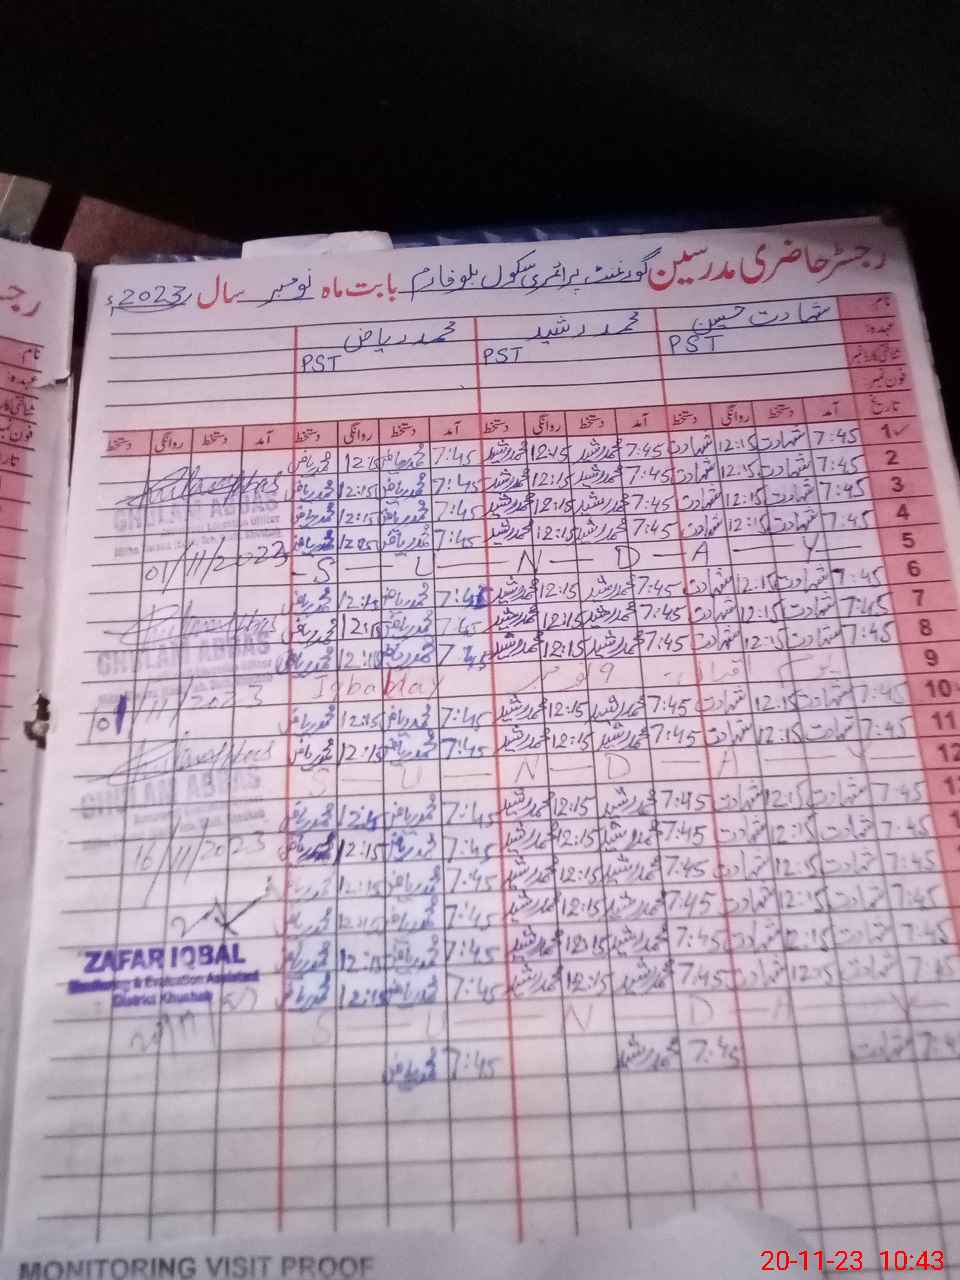 رجسٹر حاضری مدرسین گورنمنٹ پرائمری سکول بلو فارم بابت ماہ نومبر سال 2023ء
نام شہادت حسین محمد رشید محمد ریاض
عہدہ: PST PST PST
شناختی کارڈ نمبر
فون نمبر
تاریخ آمد دستخط روانگی دستخط آمد دستخط روانگی دستخط آمد دستخط روانگی دستخط آمد دستخط روانگی دستخط
1 7:45 شہادت 12:15 شہادت 7:45 محمد رشید 12:15 محمد رشید 7:45 محمد ریاض 12:15 محمد ریاض
2 7:45 شہادت 12:15 شہادت 7:45 محمد رشید 12:15 محمد رشید 7:45 محمد ریاض 12:15 محمد ریاض
3 7:45 شہادت 12:15 شہادت 7:45 محمد رشید 12:15 محمد رشید 7:45 محمد ریاض 12:15 محمد ریاض
GHULAM ABBAS
4 7:45 شہادت 12:15 شہادت 7:45 محمد رشید 12:15 محمد رشید 7:45 محمد ریاض محمد ریاض
5 S U N D A Y
01/11/2023
6 7:45 شہادت 12:15 شہادت 7:45 محمد رشید 12:15 محمد رشید 7:45 محمد ریاض 12:15 محمد ریاض
7 7:45 شہادت 12:15 شہادت 7:45 محمد رشید 12:15 محمد رشید 7:45 محمد ریاض 12:15 محمد ریاض
8 7:45 شہادت 12:15 شہادت 7:45 محمد رشید 12:15 محمد رشید 7:45 محمد ریاض 12:15 محمد ریاض
GHULAM ABBAS
9 9 نومبر Iqbal day
10 7:45 شہادت 12:15 شہادت 7:45 محمد رشید 12:15 محمد رشید 7:45 محمد ریاض 12:15 محمد ریاض
11 7:45 شہادت 12:15 شہادت 7:45 محمد رشید 12:15 محمد رشید 7:45 محمد ریاض 12:15 محمد ریاض
12 S U N D A Y
GHULAM ABBAS
7:45 شہادت 12:15 شہادت 7:45 محمد رشید 12:15 محمد رشید 7:45 محمد ریاض محمد ریاض
7:45 شہادت 12:15 شہادت 7:45 محمد رشید 12:15 محمد رشید 7:45 محمد ریاض 12:15 محمد ریاض
16/11/2023
7:45 شہادت 12:15 شہادت 7:45 محمد رشید 12:15 محمد رشید 7:45 محمد ریاض 12:15 محمد ریاض
7:45 شہادت 12:15 شہادت 7:45 محمد رشید 12:15 محمد رشید 7:45 محمد ریاض 12:15 محمد ریاض
7:45 شہادت 12:15 شہادت 7:45 محمد رشید 12:15 محمد رشید 7:45 محمد ریاض 12:15 محمد ریاض
7:45 شہادت 12:15 شہادت 7:45 محمد رشید 12:15 محمد رشید 7:45 محمد ریاض 12:15 محمد ریاض
ZAFAR IQBAL
Monitoring & Evaluation Assistant
District Khushab
S U N D A Y
7:45 شہادت 7:45 محمد رشید 7:45 محمد ریاض
MONITORING VISIT PROOF
20-11-23 10:43